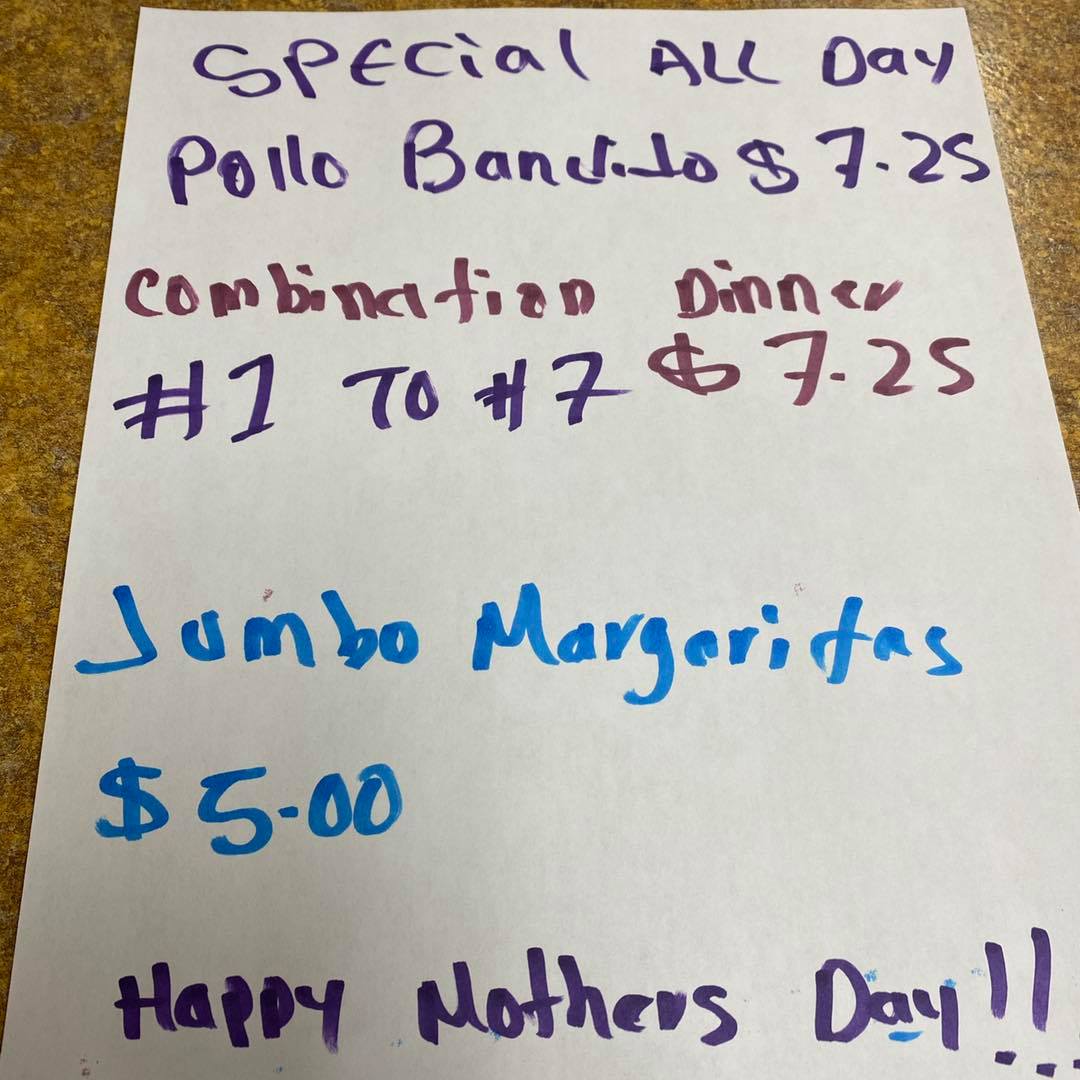 SPECial ALL Day
Pollo Bandido $7.25
Combination Dinner
#1 TO #7 $7.25
Jumbo Margaritas
$5.00
Happy Mothers Day!!